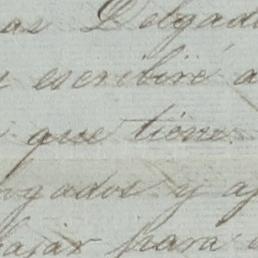 as Delgad
escribiré a
que tiene
ogados y a
bajar para